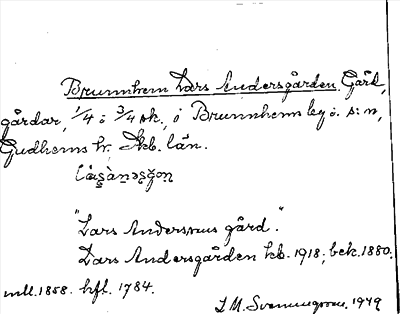 Brunnhem Lars Andersgården. Gård,
gårdar, 1/4 o 3/4 sk., i Brunnhem by o. s:n,
Gudhems hr. Skb. län.
"Lars Anderssons gård."
Lars Andersgården kb. 1918; bek. 1880.
mtl. 1858. hfl. 1784.
1949